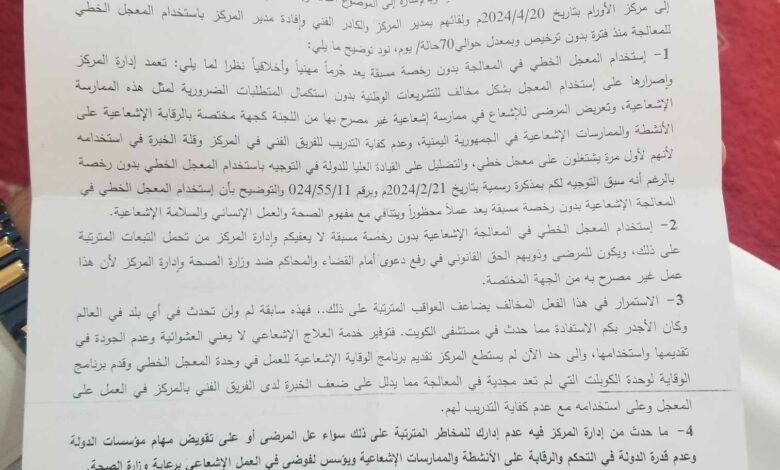 إلى مركز الأورام بتاريخ 2024/4/20م ولقائهم بمدير المركز والكادر الفني وإفادة مدير المركز باستخدام المعجل الخطي
للمعالجة منذ فترة بدون ترخيص وبمعدل حوالي70حالة/ يوم، نود توضيح ما يلي:
1- إستخدام المعجل الخطي في المعالجة بدون رخصة مسبقة يعد جُرماً مهنياً وأخلاقياً نظرا لما يلي: تعمد إدارة المركز
وإصرارها على إستخدام المعجل بشكل مخالف للتشريعات الوطنية بدون استكمال المتطلبات الضرورية لمثل هذه الممارسة
الإشعاعية، وتعريض المرضى للإشعاع في ممارسة إشعاعية غير مصرح بها من اللجنة كجهة مختصة بالرقابة الإشعاعية على
الأنشطة والممارسات الإشعاعية في الجمهورية اليمنية، وعدم كفاية التدريب للفريق الفني في المركز وقلة الخبرة في استخدامه
لأنهم لأول مرة يشتغلون على معجل خطي، والتضليل على القيادة العليا للدولة في التوجيه باستخدام المعجل الخطي بدون رخصة
بالرغم أنه سبق التوجيه لكم بمذكرة رسمية بتاريخ 2024/2/21م وبرقم 024/55/11 والتوضيح بأن إستخدام المعجل الخطي في
المعالجة الإشعاعية بدون رخصة مسبقة يعد عملاً محظوراً ويتنافي مع مفهوم الصحة والعمل الإنساني والسلامة الإشعاعية.
2- إستخدام المعجل الخطي في المعالجة الإشعاعية بدون رخصة مسبقة لا يعفيكم وإدارة المركز من تحمل التبعات المترتبة
على ذلك، ويكون للمرضى وذويهم الحق القانوني في رفع دعوى أمام القضاء والمحاكم ضد وزارة الصحة وإدارة المركز لأن هذا
عمل غير مصرح به من الجهة المختصة.
3- الاستمرار في هذا الفعل المخالف يضاعف العواقب المترتبة على ذلك.. فهذه سابقة لم ولن تحدث في أي بلد في العالم
وكان الأجدر بكم الاستفادة مما حدث في مستشفى الكويت. فتوفير خدمة العلاج الإشعاعي لا يعني العشوائية وعدم الجودة في
تقديمها واستخدامها، والى حد الآن لم يستطع المركز تقديم برنامج الوقاية الإشعاعية للعمل في وحدة المعجل الخطي وقدم برنامج
الوقاية لوحدة الكوبلت التي لم تعد مجدية في المعالجة مما يدلل على ضعف الخبرة لدى الفريق الفني بالمركز في العمل على
المعجل وعلى استخدامه مع عدم كفاية التدريب لهم.
4- ما حدث من إدارة المركز فيه عدم إدارك للمخاطر المترتبة على ذلك سواء عل المرضى أو على تقويض مهام مؤسسات الدولة
وعدم قدرة الدولة في التحكم والرقابة على الأنشطة والممارسات الإشعاعية ويؤسس لفوضى في العمل الإشعاعي برعاية وزارة الصحة.